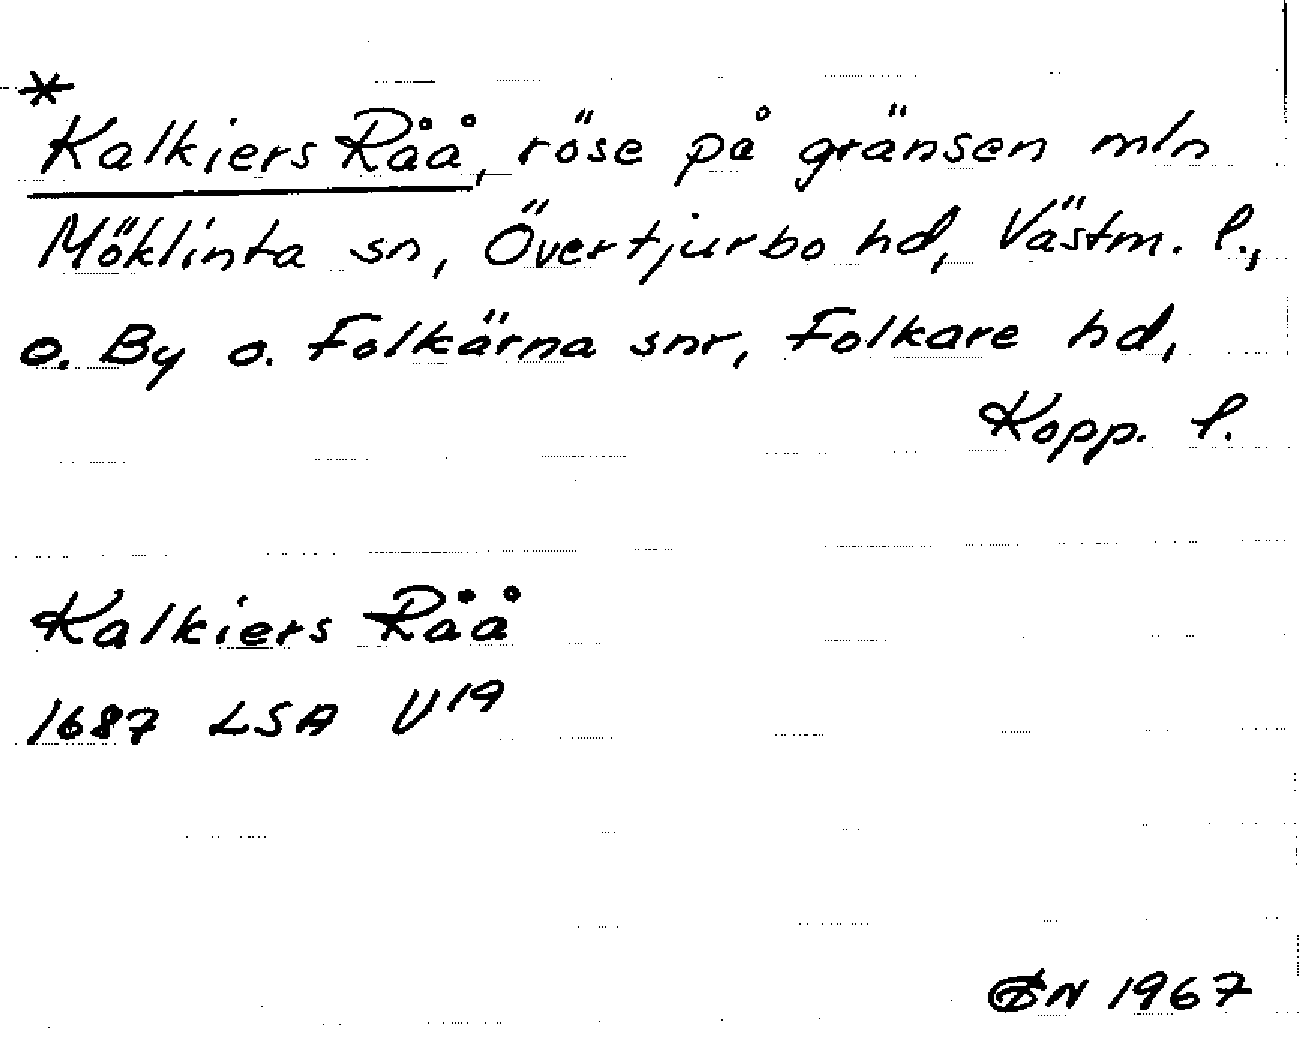 *
Kalkiers Råå, röse på gränsen mln
Möklinta sn, Övertjurbo hd, Västm. l.,
o. By o. Folkärna snr, Folkare hd,
Kopp. l.
Kalkiers Råå
1687 LSA U19
1967